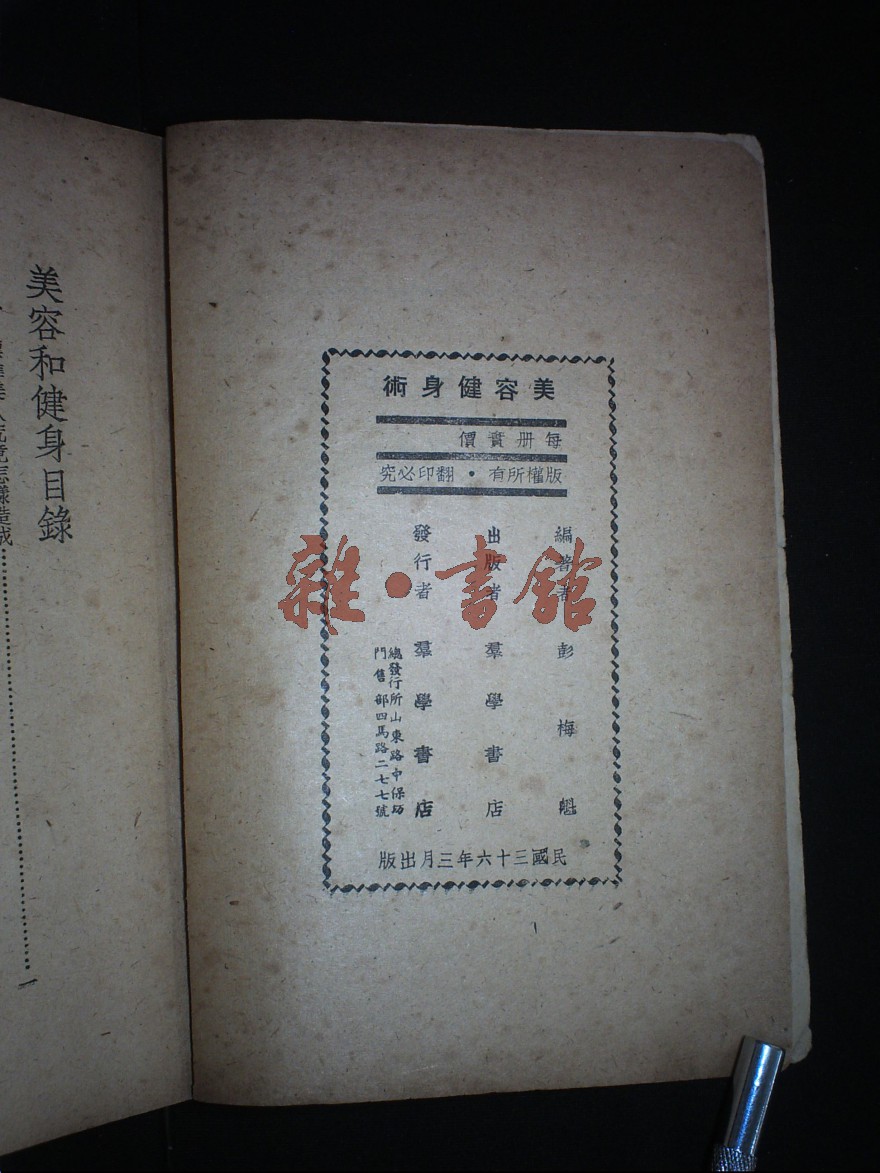 美容健身術
每册實價
版權所有・翻印必究
編著者 彭梅魁
出版者 羣學書店
發行者 羣學書店
總發行所山東路中保坊
門售部四馬路二七七號
民國三十六年三月出版
美容和健身目錄
究竟怎樣造成……一
雜・書館